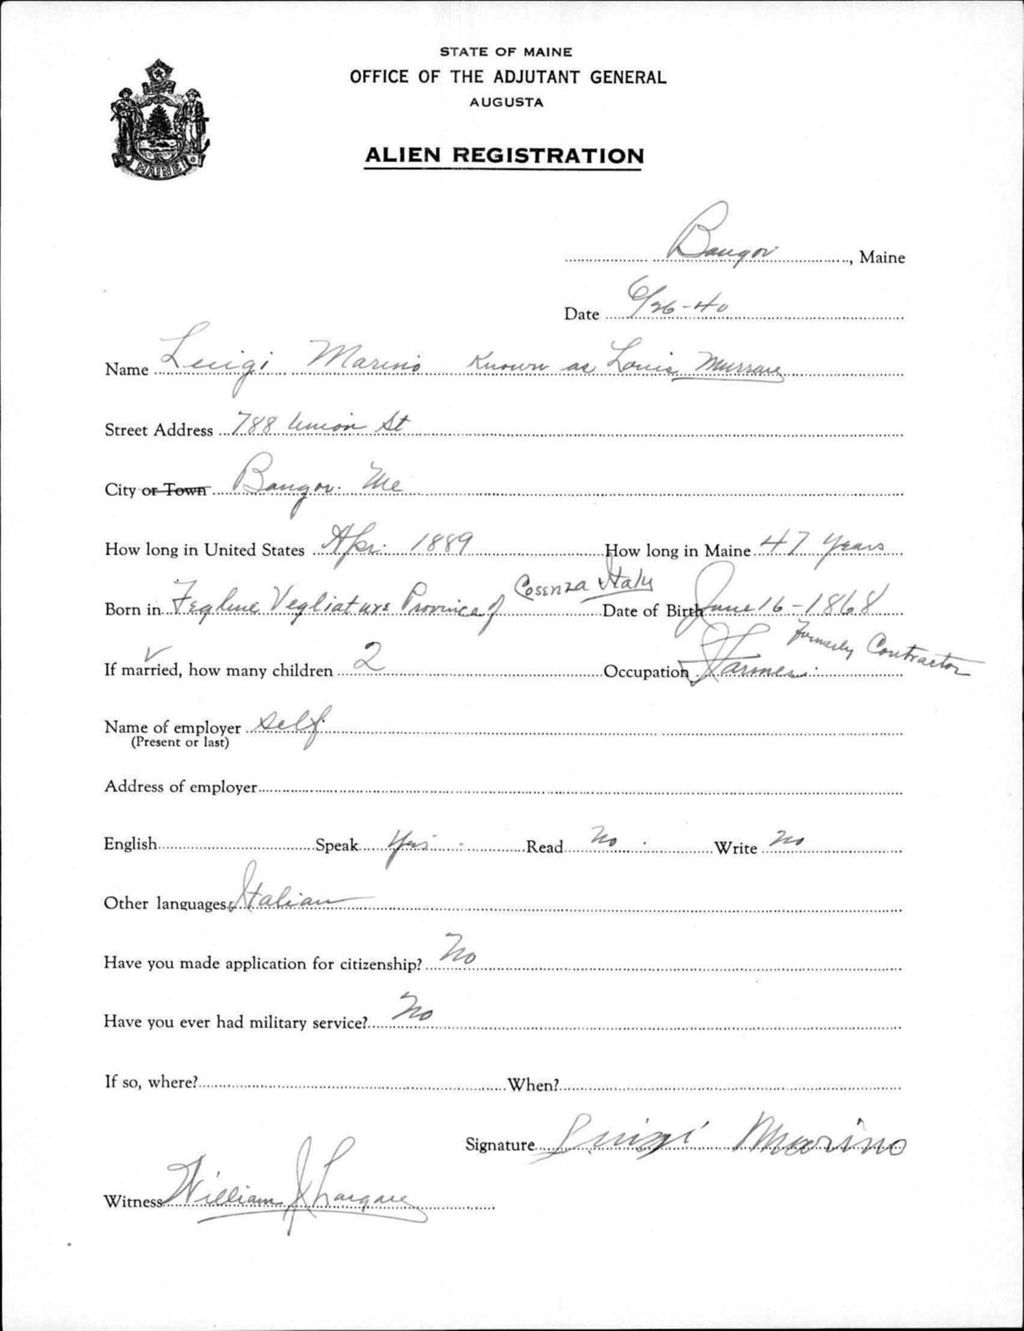 STATE OF MAINE
OFFICE OF THE ADJUTANT GENERAL
AUGUSTA
MAINE
ALIEN REGISTRATION
Bangor, Maine
Date 6/26-40
Name Luigi Marino Known as Louis Murray
Street Address 788 Union St
City or Town Bangor. Me
How long in United States Apr. 1889 How long in Maine 47 years
Born in Vegliature Province of Cosenza Italy Date of Birth June 16-1868
If married, how many children 2 Occupation Farmer. formerly Contractor
Name of employer self
(Present or last)
Address of employer
English Speak Yes Read No Write No
Other languages Italian
Have you made application for citizenship? No
Have you ever had military service? No
If so, where? When?
Signature Luigi Marino
Witness William J